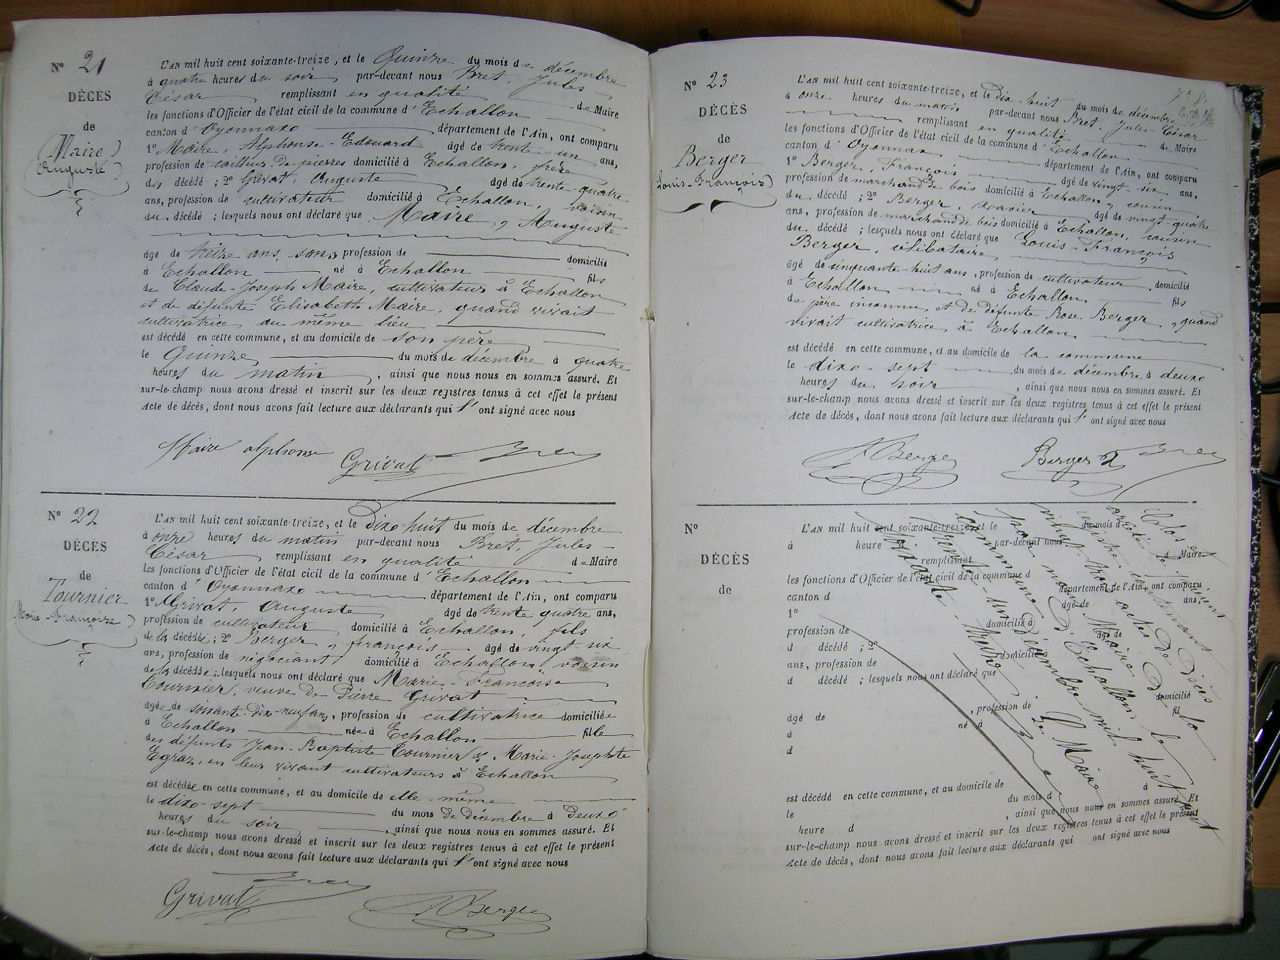 N° 21
DÉCÈS
de
Maire
Auguste
L'AN mil huit cent soixante-treize, et le Quinze du mois de décembre
à quatre heures du soir, par-devant nous Bret, Jules
César remplissant en qualité de Maire
les fonctions d'Officier de l'état civil de la commune d'Echallon
canton d'Oyonnaxe département de l'Ain, ont comparu
1° Maire, Alphonse-Edouard âgé de trente un ans,
profession de tailleur de pierres domicilié à Echallon, frère
du décédé ; 2° Grivat, Auguste âgé de trente quatre
ans, profession de cultivateur domicilié à Echallon, voisin
du décédé ; lesquels nous ont déclaré que Maire, Auguste
âgé de treize ans, sans profession de domicilié
à Echallon né à Echallon fils
de Claude-Joseph Maire, cultivateur à Echallon
et de défunte Elisabeth Maire, quand vivait
cultivatrice au même lieu
est décédé en cette commune, et au domicile de son père
le Quinze du mois de décembre à quatre
heures du matin, ainsi que nous nous en sommes assuré. Et
sur-le-champ nous avons dressé et inscrit sur les deux registres tenus à cet effet le présent
acte de décès, dont nous avons fait lecture aux déclarants qui l'ont signé avec nous
Maire alphonse Grivat Bret
N° 22
DÉCÈS
de
Tournier
Marie-Françoise
L'AN mil huit cent soixante-treize, et le dixe-huit du mois de décembre
à onze heures du matin par-devant nous Bret, Jules-
César remplissant en qualité de Maire
les fonctions d'Officier de l'état civil de la commune d'Echallon
canton d'Oyonnaxe département de l'Ain, ont comparu
1° Grivat Auguste âgé de trente quatre ans,
profession de cultivateur, domicilié à Echallon, fils
de la décédée ; 2° Berger, françois âgé de vingt-six
ans, profession de négociant domicilié à Echallon, voisin
de la décédée ; lesquels nous ont déclaré que Marie-Françoise
Tournier, veuve de Pierre Grivat
âgée de soixante-dix-neuf ans, profession de cultivatrice domiciliée
à Echallon née à Echallon fille
des défunts Jean-Baptiste Tournier & Marie-Josephte
Egraz, en leur vivant cultivateurs à Echallon
est décédée en cette commune, et au domicile de elle-même
le dixe-sept du mois de décembre à deuxe
heures du soir, ainsi que nous nous en sommes assuré. Et
sur-le-champ nous avons dressé et inscrit sur les deux registres tenus à cet effet le présent
acte de décès, dont nous avons fait lecture aux déclarants qui l'ont signé avec nous
Grivat Bret Berger
N° 23
DÉCÈS
de
Berger
Louis-François
L'AN mil huit cent soixante-treize, et le dix-huit du mois de décembre
à onze heures du matin par-devant nous Bret, Jules-César
remplissant en qualité de Maire
les fonctions d'Officier de l'état civil de la commune d'Echallon
canton d'Oyonnax département de l'Ain, ont comparu
1° Berger, François âgé de vingt six ans,
profession de marchand de bois domicilié à Echallon, cousin
du décédé ; 2° Berger, Xavier âgé de vingt-quatre
ans, profession de marchand de bois domicilié à Echallon, cousin
du décédé ; lesquels nous ont déclaré que Louis-François
Berger, célibataire
âgé de cinquante-huit ans, profession de cultivateur, domicilié
à Echallon né à Echallon fils
de père inconnu et de défunte Rose Berger, quand
vivait cultivatrice à Echallon
est décédé en cette commune, et au domicile de la commune
le dixe-sept du mois de décembre à deuxe
heures du soir, ainsi que nous nous en sommes assuré. Et
sur-le-champ nous avons dressé et inscrit sur les deux registres tenus à cet effet le présent
acte de décès, dont nous avons fait lecture aux déclarants qui l'ont signé avec nous
Berger Berger Bret
N°
DÉCÈS
de
L'AN mil huit cent soixante-treize, et le du mois d
à heure d par-devant nous
d Maire
les fonctions d'Officier de l'état civil de la commune d
canton d département de l'Ain, ont comparu
1° âgé de ans,
profession de domicilié à
d décédé ; 2° âgé de
ans, profession de domicilié
d décédé ; lesquels nous ont déclaré que
domicilié
âgé de , profession de fil
à né à
d
d
est décédé en cette commune, et au domicile de
le du mois d à
heure d , ainsi que nous nous en sommes assuré. Et
sur-le-champ nous avons dressé et inscrit sur les deux registres tenus à cet effet le présent
acte de décès, dont nous avons fait lecture aux déclarants qui ont signé avec nous
Clos et
arrêté le présent
registre contenant
vingt-trois actes de décès par
nous Maire de la
commune d'Echallon le
trente-un décembre mil huit cent
soixante-treize
Le Maire
Bret